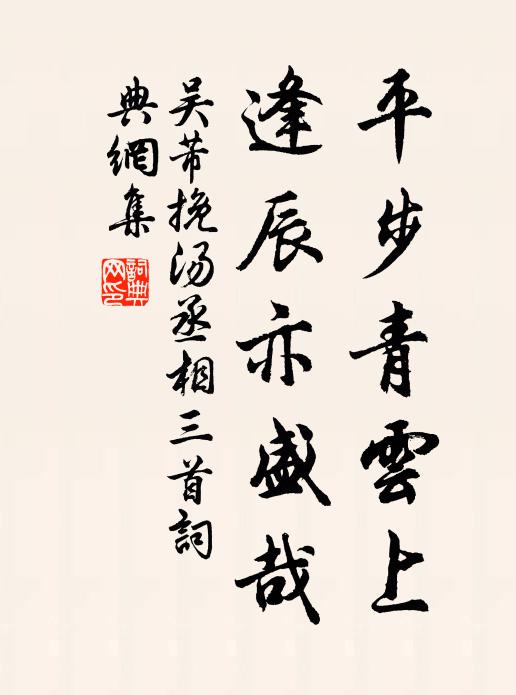 平步青雲上
逢辰亦盛哉
吳芾挽汤丞相三首詞
典網集
詞典
网印